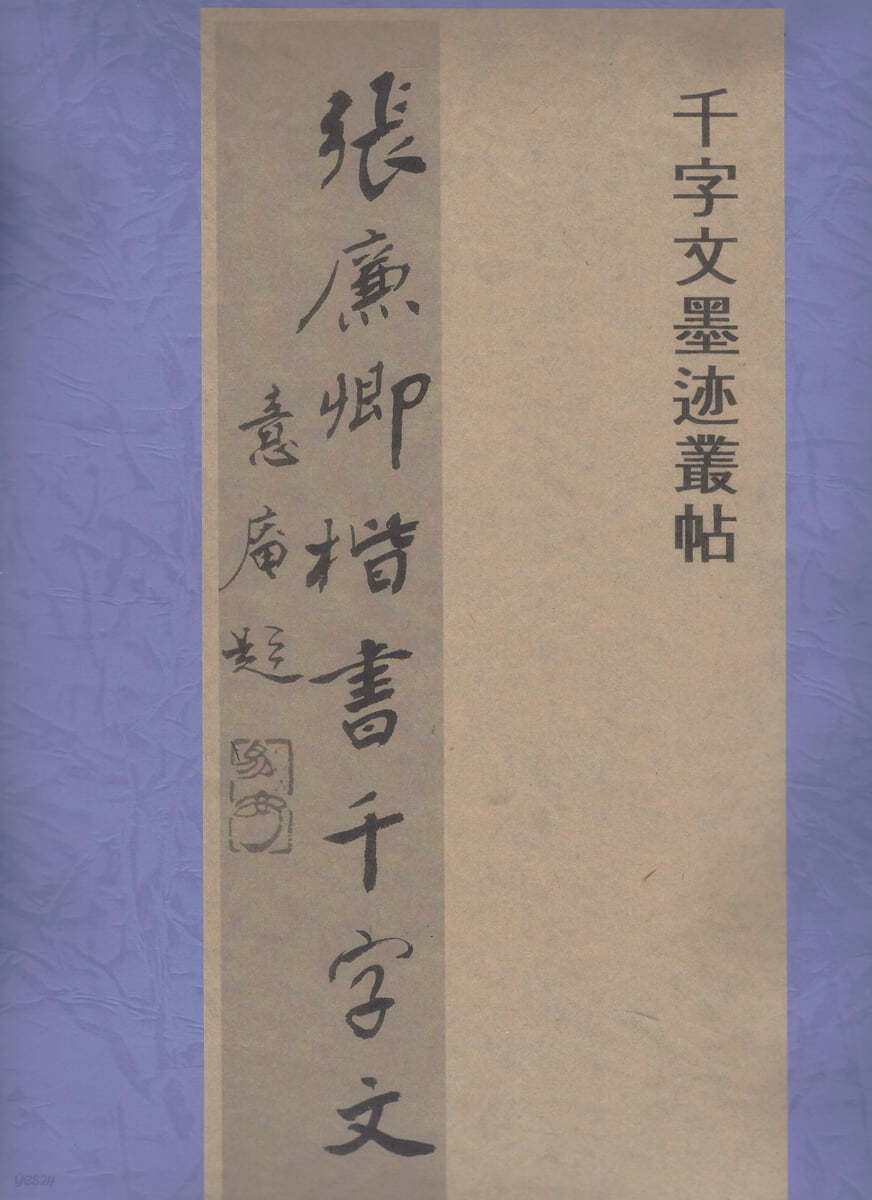 千字文墨迹叢帖
張廉卿楷書千字文
憙庵題
yes24